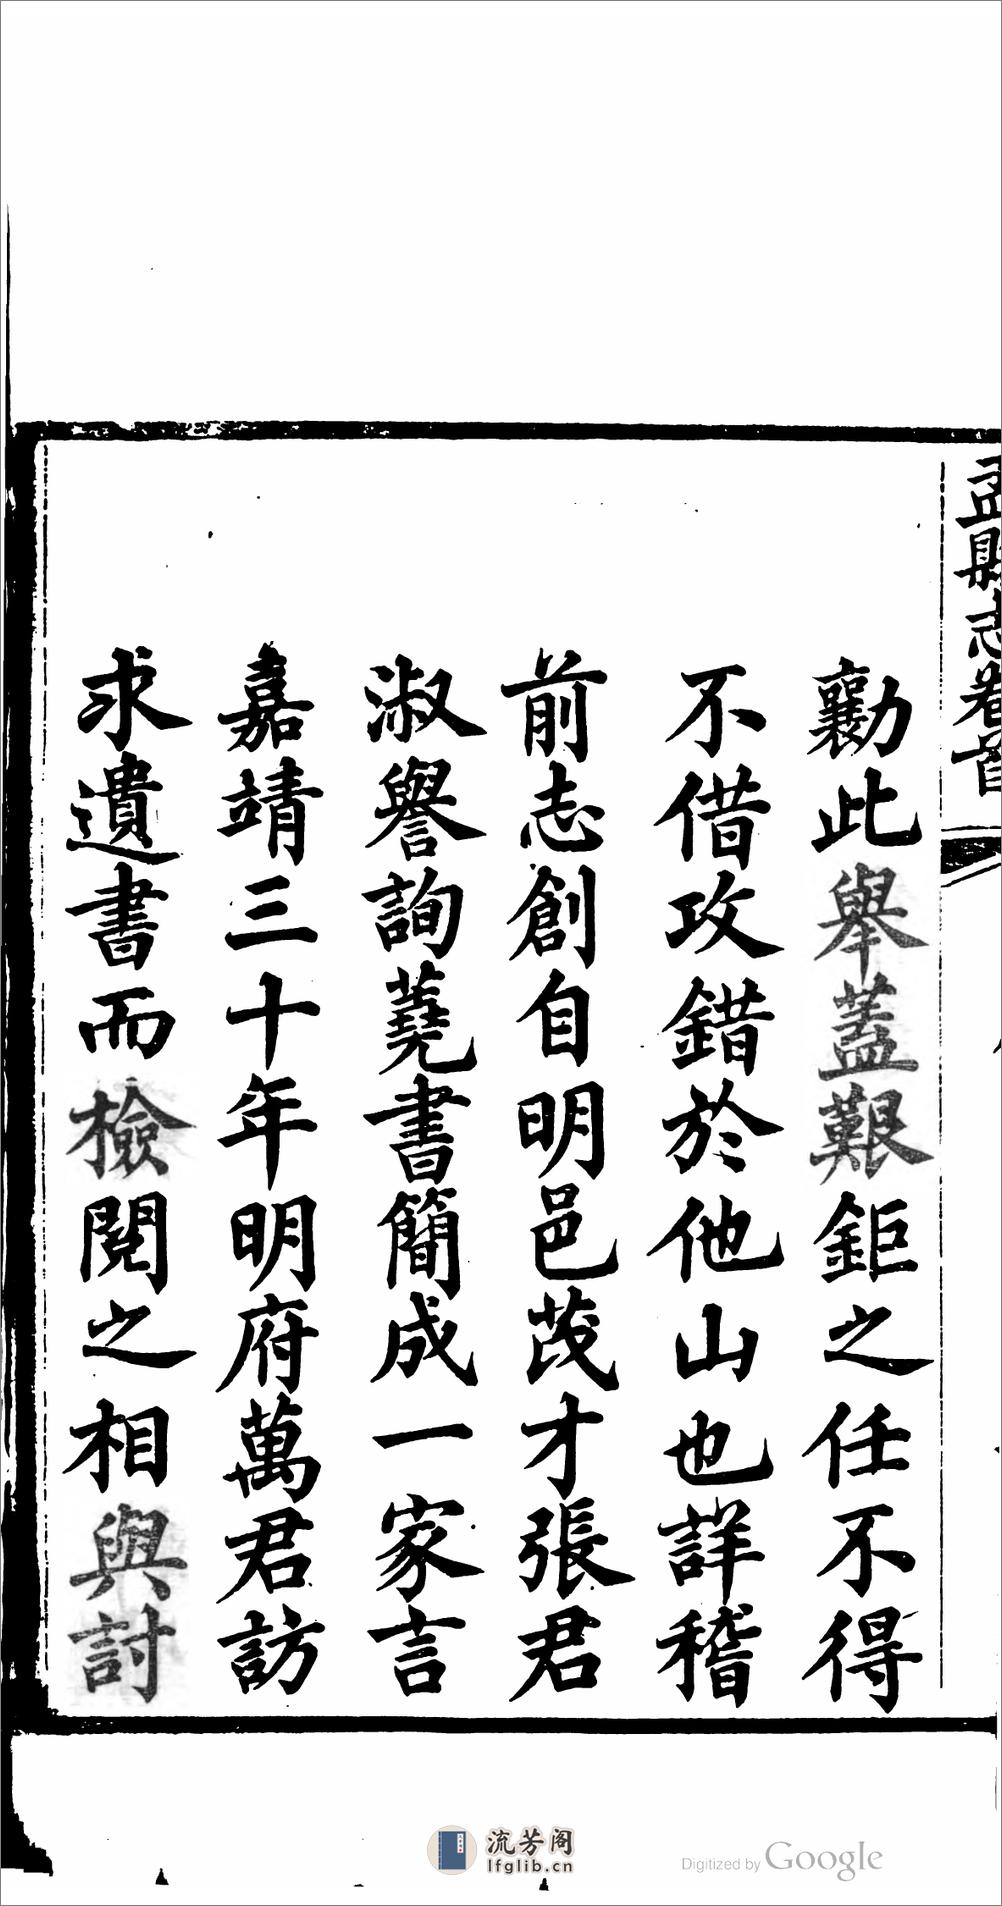 縣志卷首
勷此舉蓋艱鉅之任不得
不借攻錯於他山也詳稽
前志創自明邑茂才張君
淑譽詢蕘書簡成一家言
嘉靖三十年明府萬君訪
求遺書而檢閱之相與討
流芳阁
lfglib.cn
Digitized by Google